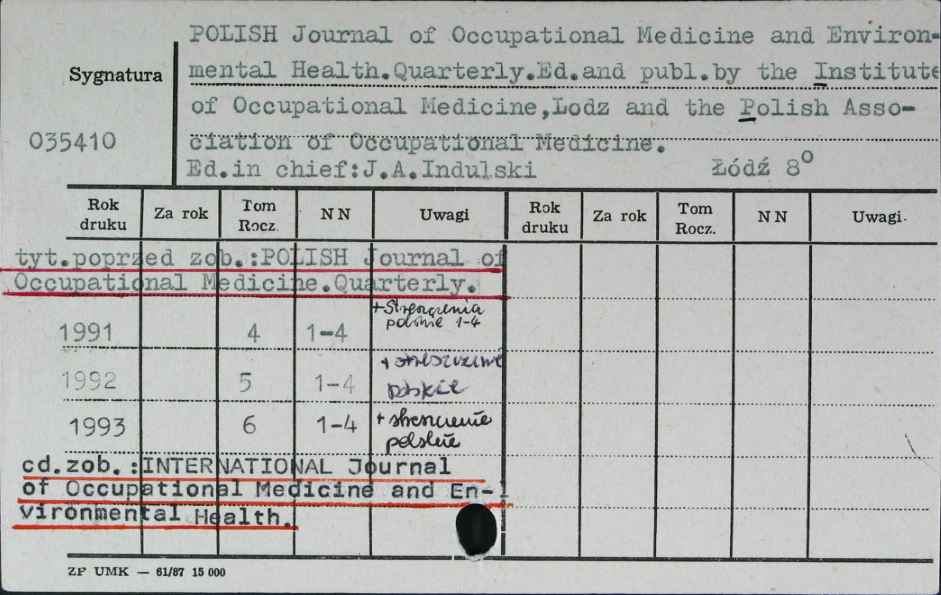 POLISH Journal of Occupational Medicine and Environ-
Sygnatura
mental Health.Quarterly.Ed.and publ.by the Institute
of Occupational Medicine,Lodz and the Polish Asso-
035410
ciation of Occupational Medicine.
Ed.in chief:J.A.Indulski Łódź 8°
Rok druku Za rok Tom Rocz. NN Uwagi Rok druku Za rok Tom Rocz. NN Uwagi.
tyt.poprzed zob.:POLISH Journal of
Occupational Medicine.Quarterly.
+ Streszczenia
polskie 1-4
1991 4 1-4
+ streszczenie
1992 5 1-4 polskie
1993 6 1-4 + streszczenie
polskie
cd.zob.:INTERNATIONAL Journal
of Occupational Medicine and En-
vironmental Health.
ZP UMK — 61/87 15 000